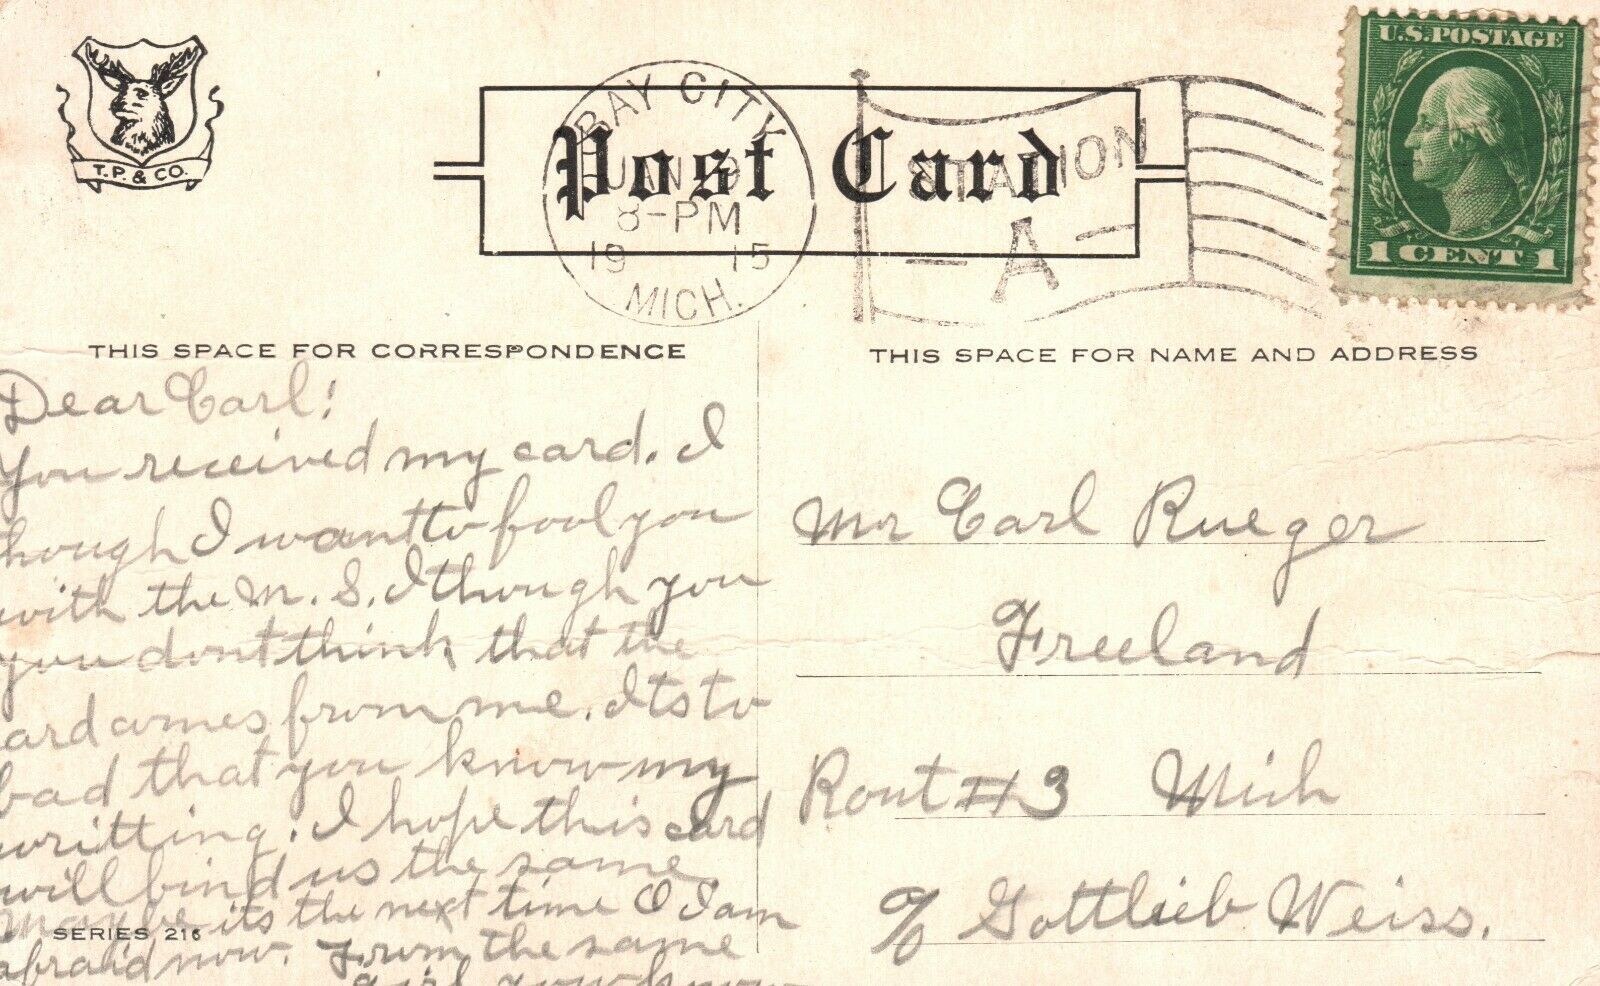 T.P. & CO.
Post Card
BAY CITY
JUN
8-PM
19 15
MICH.
STATION
A
U.S. POSTAGE
1 CENT 1
THIS SPACE FOR CORRESPONDENCE
Dear Carl!
You received my card. I
hough I want to fool you
with the M. S. I though you
you dont think that the
ard comes from me. Its to
bad that you know my
writting. I hope this card
will bind us the same
maybe its the next time O I am
afraid now. From the same
girl you know
SERIES 216
THIS SPACE FOR NAME AND ADDRESS
Mr Carl Rueger
Freeland
Rout #3 Mich
c/o Gottlieb Weiss.